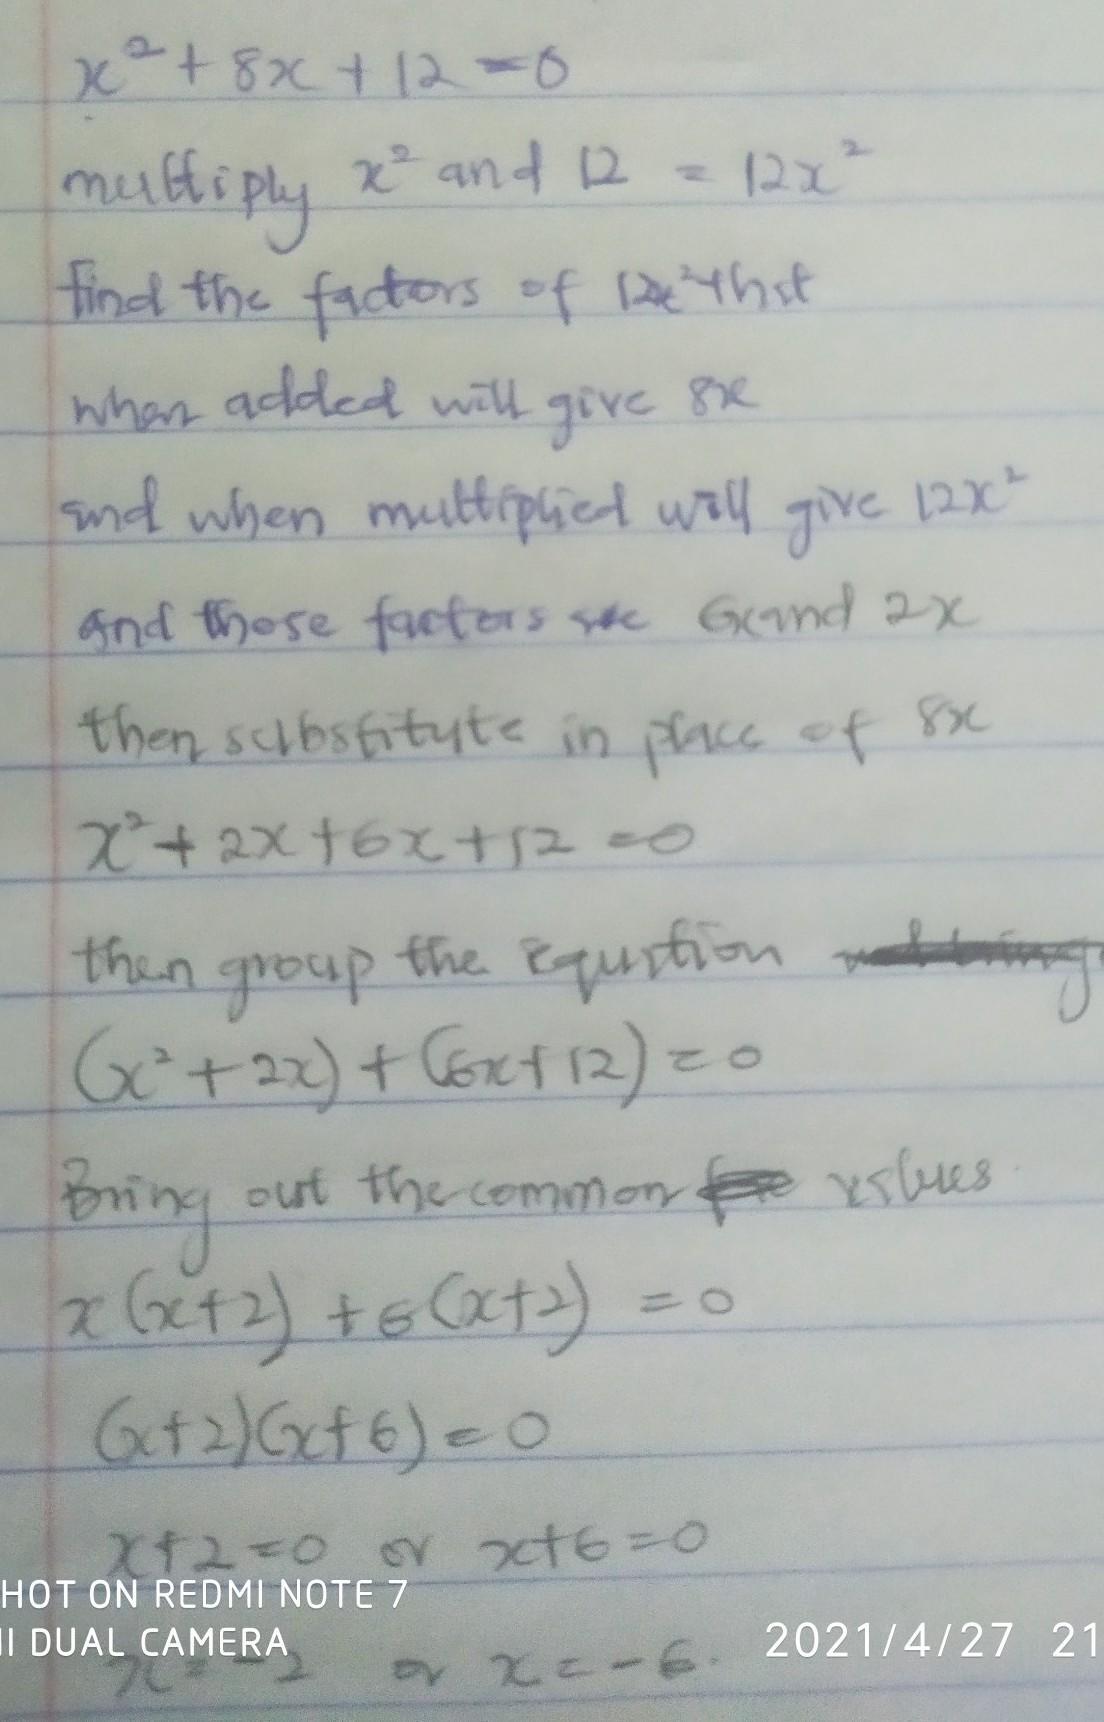 x² + 8x + 12 = 0
multiply x² and 12 = 12x²
find the factors of 12x² that
when added will give 8x
and when multiplied will give 12x²
and those factors are 6x and 2x
then substitute in place of 8x
x² + 2x + 6x + 12 = 0
then group the equation
(x² + 2x) + (6x + 12) = 0
Bring out the common values
x(x+2) + 6(x+2) = 0
(x+2)(x+6) = 0
x+2=0 or x+6=0
HOT ON REDMI NOTE 7
I DUAL CAMERA
2021/4/27 21
x = -2 or x = -6.